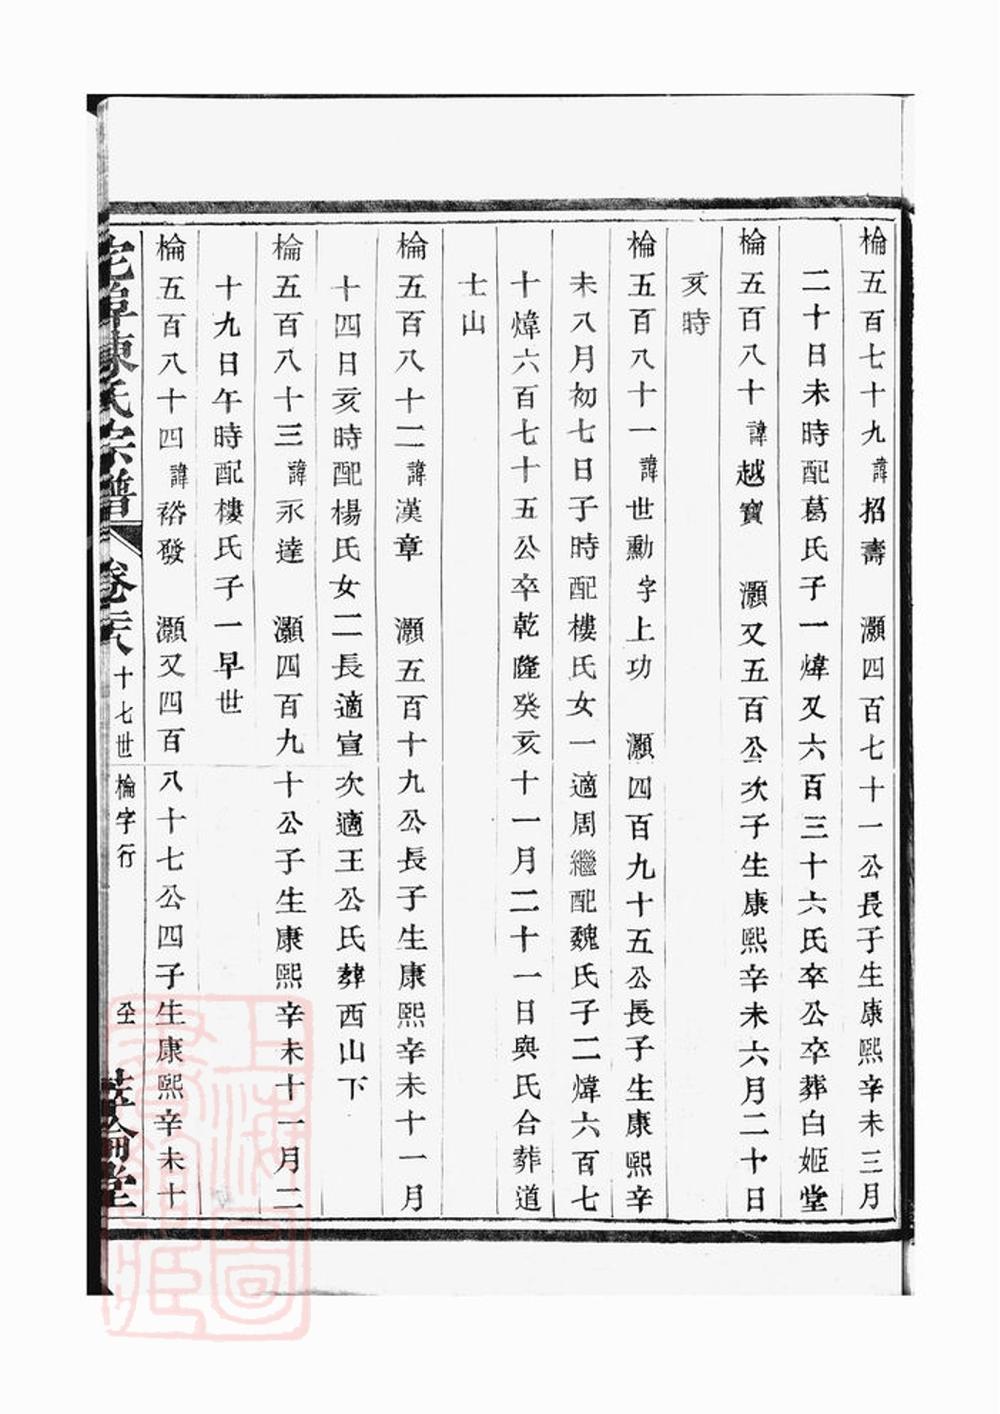 棆五百七十九諱招壽　灝四百七十一公長子生康熙辛未三月
二十日未時配葛氏子一煒又六百三十六氏卒公卒葬白姬堂
棆五百八十諱越寶　灝又五百公次子生康熙辛未六月二十日
亥時
棆五百八十一諱世勳字上功　灝四百九十五公長子生康熙辛
未八月初七日子時配樓氏女一適周繼配魏氏子二煒六百七
十煒六百七十五公卒乾隆癸亥十一月二十一日與氏合葬道
士山
棆五百八十二諱漢章　灝五百十九公長子生康熙辛未十一月
十四日亥時配楊氏女二長適宣次適王公氏葬西山下
棆五百八十三諱永達　灝四百九十公子生康熙辛未十一月二
十九日午時配樓氏子一早世
棆五百八十四諱裕發　灝又四百八十七公四子生康熙辛未十
宅埠陳氏宗譜　卷　十七世棆字行　堂
上海圖書館藏